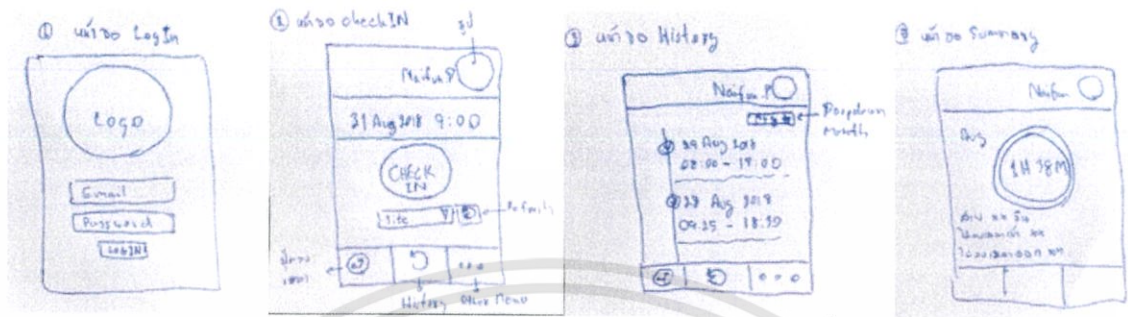 ① หน้าจอ LogIn
LOGO
Email
Password
LOGIN
② หน้าจอ checkIN
รูป
Naifun P
31 Aug 2018 9:00
CHECK
IN
Site
Refresh
History
Other Menu
③ หน้าจอ History
Naifun P
Dropdown
Month
29 Aug 2018
08:00 - 17:00
28 Aug 2018
09.25 - 18.30
หน้าจอ Summary
Naifun
Aug
1H 38M